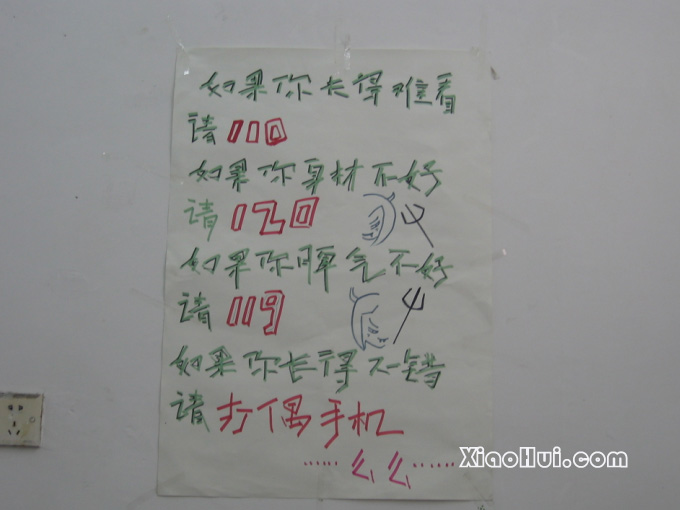 如果你长得难看
请110
如果你身材不好
请120
如果你脾气不好
请119
如果你长得不错
请打偶手机
……么么……
XiaoHui.com